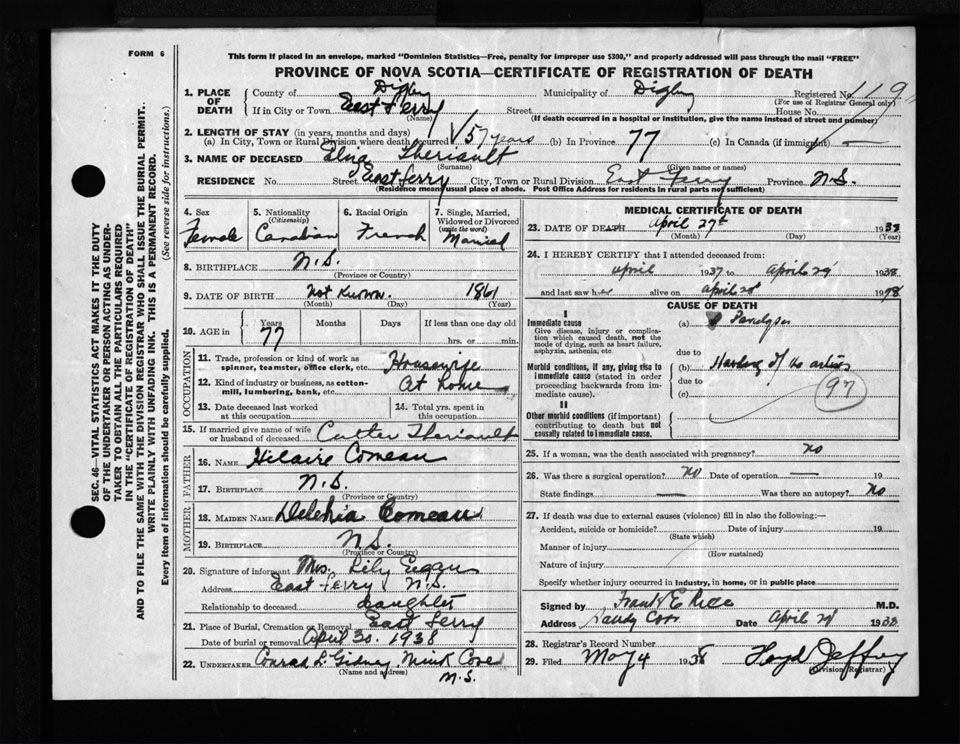 FORM 6
This form if placed in an envelope, marked "Dominion Statistics—Free, penalty for improper use $300," and properly addressed will pass through the mail "FREE"
PROVINCE OF NOVA SCOTIA—CERTIFICATE OF REGISTRATION OF DEATH
SEC. 46—VITAL STATISTICS ACT MAKES IT THE DUTY
OF THE UNDERTAKER OR PERSON ACTING AS UNDER-
TAKER TO OBTAIN ALL THE PARTICULARS REQUIRED
IN THE "CERTIFICATE OF REGISTRATION OF DEATH"
AND TO FILE THE SAME WITH THE DIVISION REGISTRAR WHO SHALL ISSUE THE BURIAL PERMIT.
WRITE PLAINLY WITH UNFADING INK. THIS IS A PERMANENT RECORD.
Every item of information should be carefully supplied. (See reverse side for instructions.)
1. PLACE OF DEATH
County of Digby Municipality of Digby Registered No. 119
(For use of Registrar General only)
If in City or Town East Ferry Street House No.
(Name) (If death occurred in a hospital or institution, give the name instead of street and number)
2. LENGTH OF STAY (in years, months and days)
(a) In City, Town or Rural Division where death occurred 57 years (b) In Province 77 (c) In Canada (if immigrant) —
3. NAME OF DECEASED Theriault
(Surname) (Given name or names)
RESIDENCE No. Street East Ferry City, Town or Rural Division East Ferry Province N.S.
(Residence means usual place of abode. Post Office Address for residents in rural parts not sufficient)
4. Sex Female
5. Nationality (Citizenship) Canadian
6. Racial Origin French
7. Single, Married, Widowed or Divorced (write the word) Married
8. BIRTHPLACE N.S.
(Province or Country)
9. DATE OF BIRTH Not Known 1861
(Month) (Day) (Year)
10. AGE in Years 77 Months Days If less than one day hrs. or min.
OCCUPATION
11. Trade, profession or kind of work as spinner, teamster, office clerk, etc. Housewife
12. Kind of industry or business, as cotton-mill, lumbering, bank, etc. At home
13. Date deceased last worked at this occupation
14. Total yrs. spent in this occupation
15. If married give name of wife or husband of deceased Theriault
FATHER
16. NAME Hilaire Comeau
17. BIRTHPLACE N.S.
(Province or Country)
MOTHER
18. MAIDEN NAME Comeau
19. BIRTHPLACE N.S.
(Province or Country)
20. Signature of informant Mrs. Lily
Address East Ferry N.S.
Relationship to deceased daughter
21. Place of Burial, Cremation or Removal East Ferry
Date of burial or removal April 30. 1938
22. UNDERTAKER Conrad L. Gidney Mink Cove
(Name and address) N.S.
MEDICAL CERTIFICATE OF DEATH
23. DATE OF DEATH April 27th 1938
(Month) (Day) (Year)
24. I HEREBY CERTIFY that I attended deceased from:
April 1937 to April 1938
and last saw her alive on April 1938
CAUSE OF DEATH
I
Immediate cause
Give disease, injury or complication which caused death, not the mode of dying, such as heart failure, asphyxia, asthenia, etc.
(a)
due to
Morbid conditions, if any, giving rise to immediate cause (stated in order proceeding backwards from immediate cause).
(b) of the
due to
(c) 97
II
Other morbid conditions (if important) contributing to death but not causally related to immediate cause.
25. If a woman, was the death associated with pregnancy? no
26. Was there a surgical operation? no Date of operation — 19
State findings — Was there an autopsy? no
27. If death was due to external causes (violence) fill in also the following:—
Accident, suicide or homicide? Date of injury 19
(State which)
Manner of injury
(How sustained)
Nature of injury
Specify whether injury occurred in industry, in home, or in public place
Signed by Frank E Rice M.D.
Address Sandy Cove Date April 1938
28. Registrar's Record Number
29. Filed May 4 1938 Jeffrey
(Division Registrar)